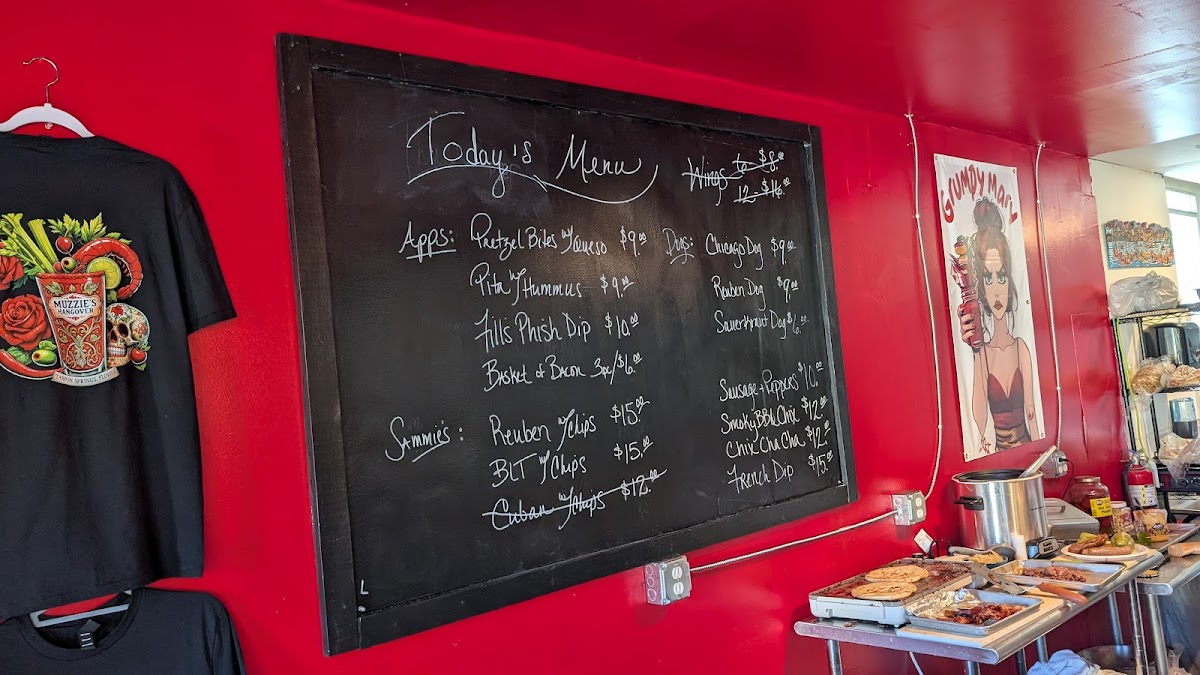 Today's Menu
Wings 6 - $8.00
12 - $16.00
Apps: Pretzel Bites w/ Queso $9.00
Pita w/ Hummus $9.00
Fill's Phish Dip $10.00
Basket of Bacon 3pc/$6.00
Dogs: Chicago Dog $9.00
Reuben Dog $9.00
Sauerkraut Dog $6.00
Sammie's: Reuben w/ Chips $15.00
BLT w/ Chips $15.00
Cuban w/ Chips $12.00
Sausage + Peppers $10.00
Smoky BBQ Chix $12.00
Chix Cha Cha $12.00
French Dip $15.00
L
MUZZIE'S
HANGOVER
TARPON SPRINGS, FLORIDA
GRUMPY MARY